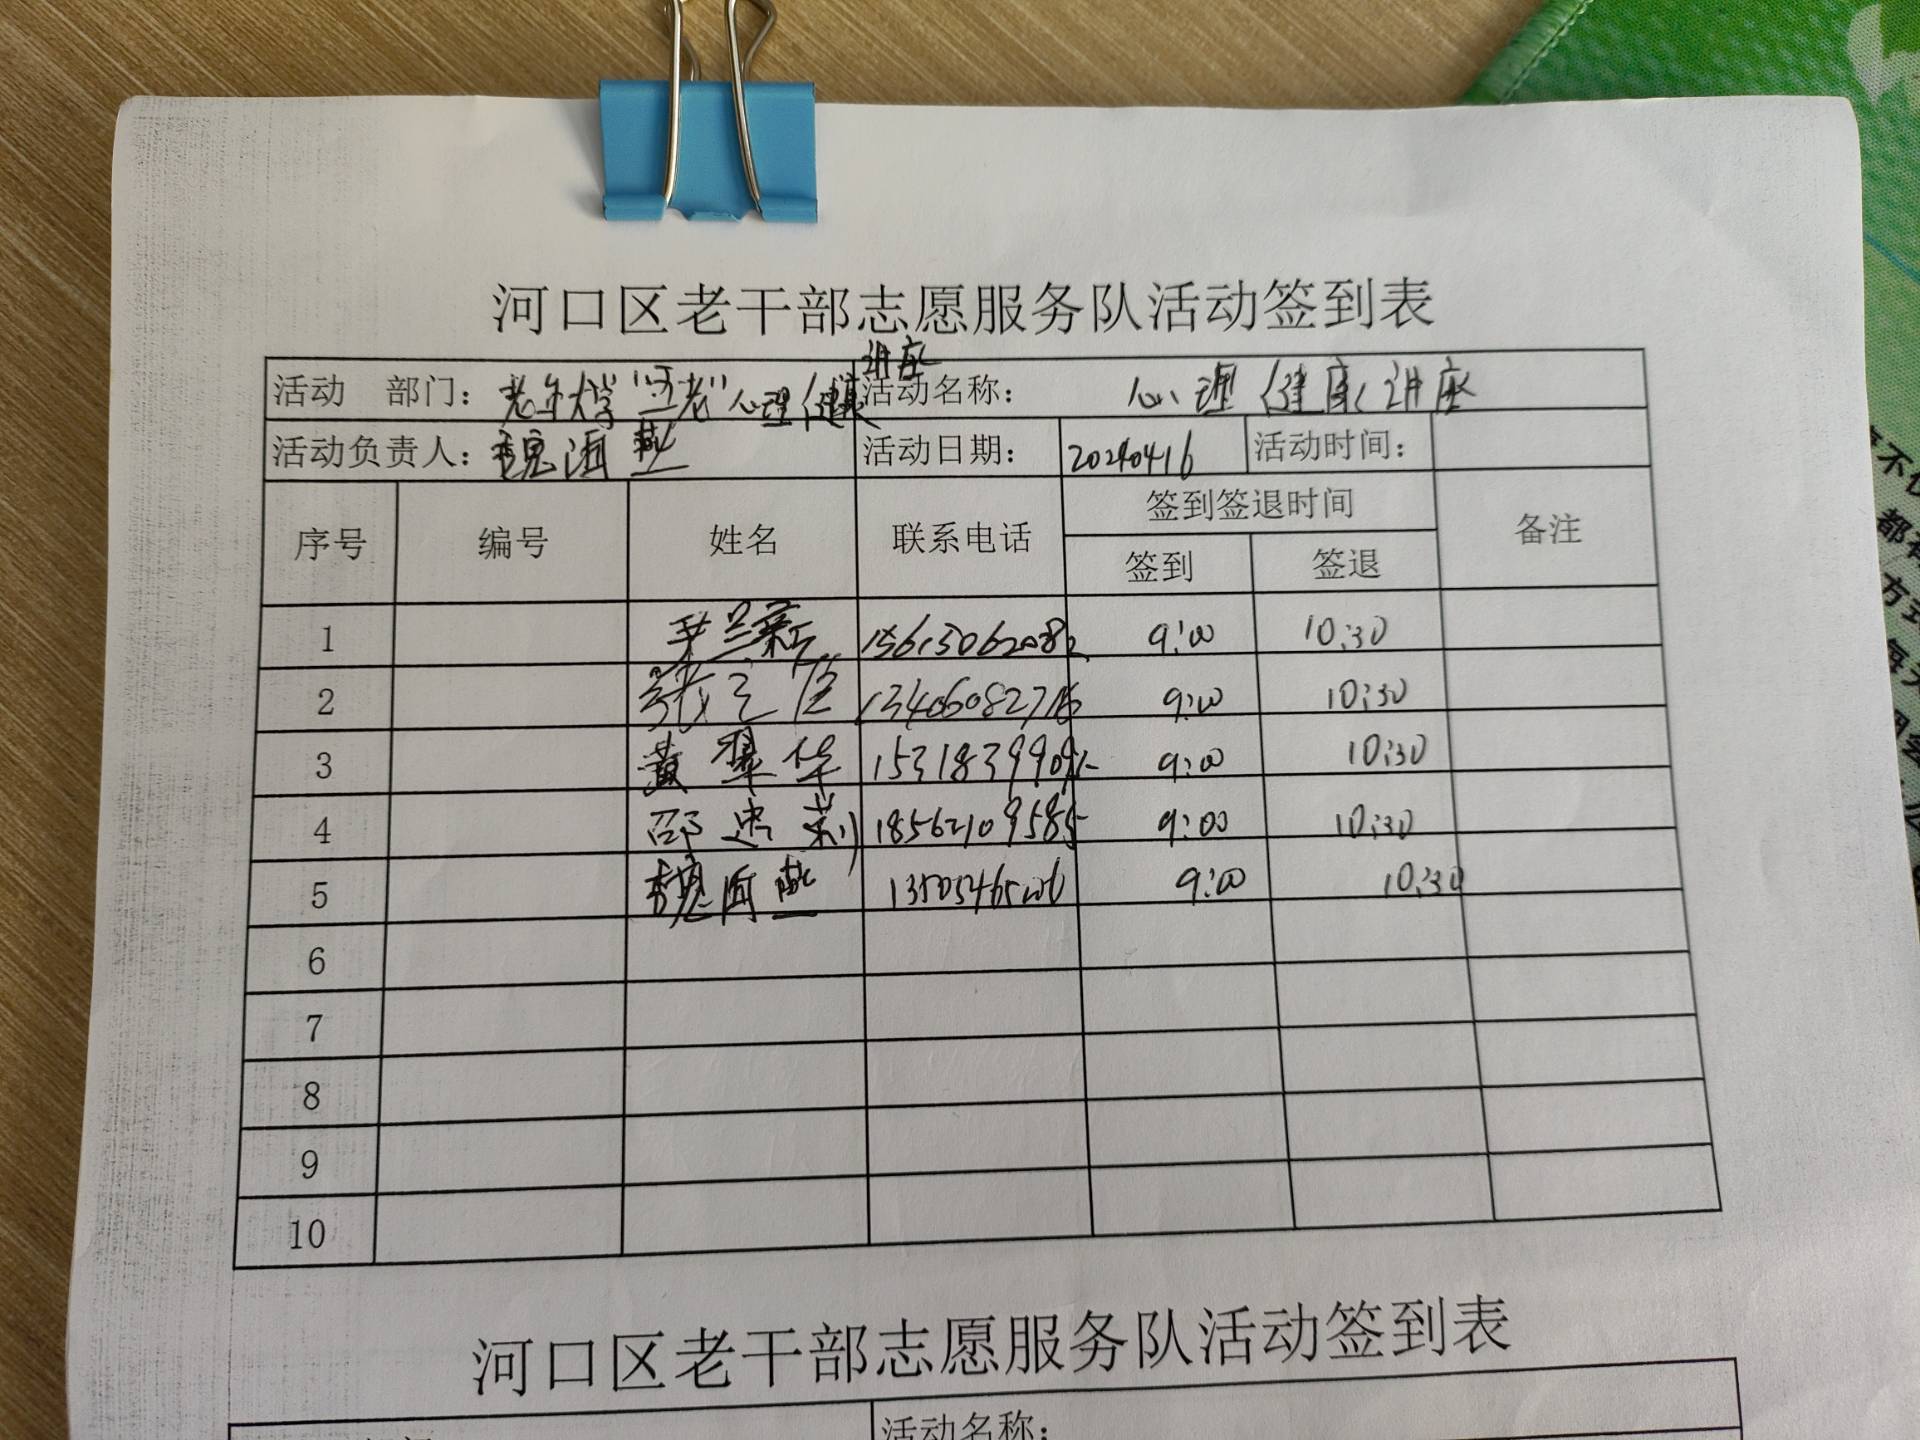 河口区老干部志愿服务队活动签到表
讲座
活动 部门：老年大学"五老"心理健康 活动名称： 心理健康讲座
活动负责人：魏海燕 活动日期： 20240416 活动时间：
序号 编号 姓名 联系电话 签到签退时间 备注
签到 签退
1 尹兰新 15615062082 9:00 10:30
2 张 13406082716 9:00 10:30
3 黄翠华 9:00 10:30
4 邵忠莉 18562109585 9:00 10:30
5 魏海燕 9:00 10:30
6
7
8
9
10
河口区老干部志愿服务队活动签到表
活动名称：